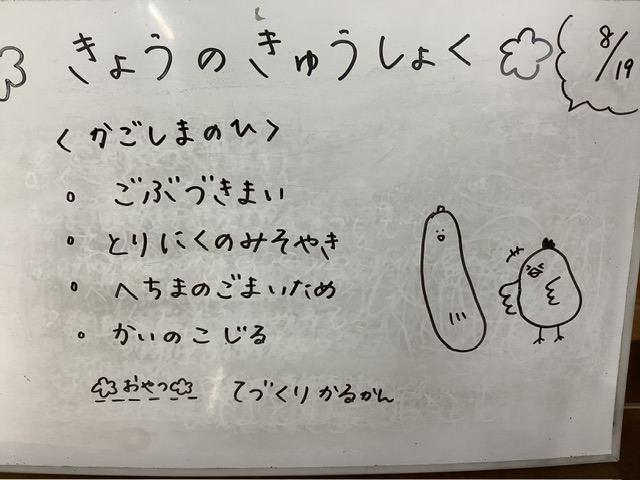 きょうのきゅうしょく
8/19
<かごしまのひ>
。ごぶづきまい
。とりにくのみそやき
。へちまのごまいため
。かいのこじる
おやつ てづくりかるかん